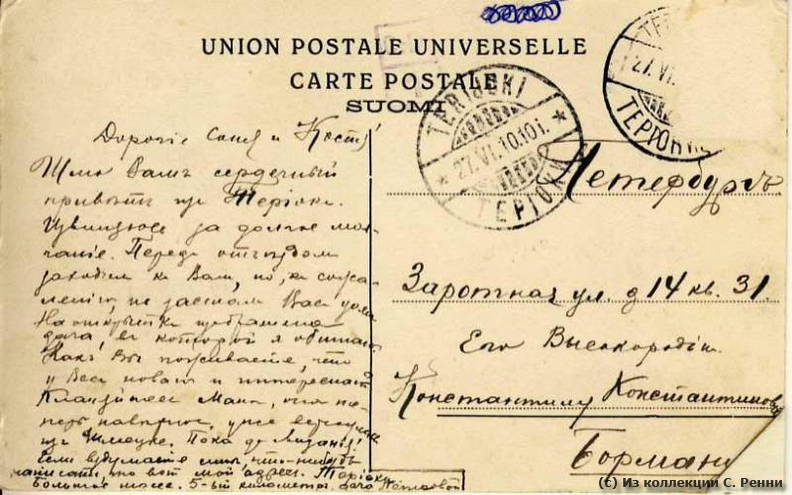 UNION POSTALE UNIVERSELLE
CARTE POSTALE
SUOMI
TERIJOKI
27.VI.10.10 i.
ТЕРІОКИ
27.VI.
ТЕРІОКИ
Дорогіе Соня и Костя!
Шлю Вамъ сердечный
привѣтъ из Теріокъ.
Извиняюсь за долгое мол-
чаніе. Передъ отъѣздом
заходил к Вам, но, к сожа-
лению, не застал Вас дома
На открыткѣ изображена
дача, в которой я обитаю.
Какъ Вы поживаете, что
у Вас новаго и интереснаго
Кланяйтесь Мане, она те-
перь навѣрное, уже вернулась
из. Пока до свиданья!
Если вздумаете мнѣ что-нибудь
написать, то вот мой адрес. Теріоки
Большое шоссе. 5-ый километръ. дача
Петербургъ
Заротная ул. д 14 кв. 31.
Его Высокородію
Константину Константиновичу
Борману
(с) Из коллекции С. Ренни